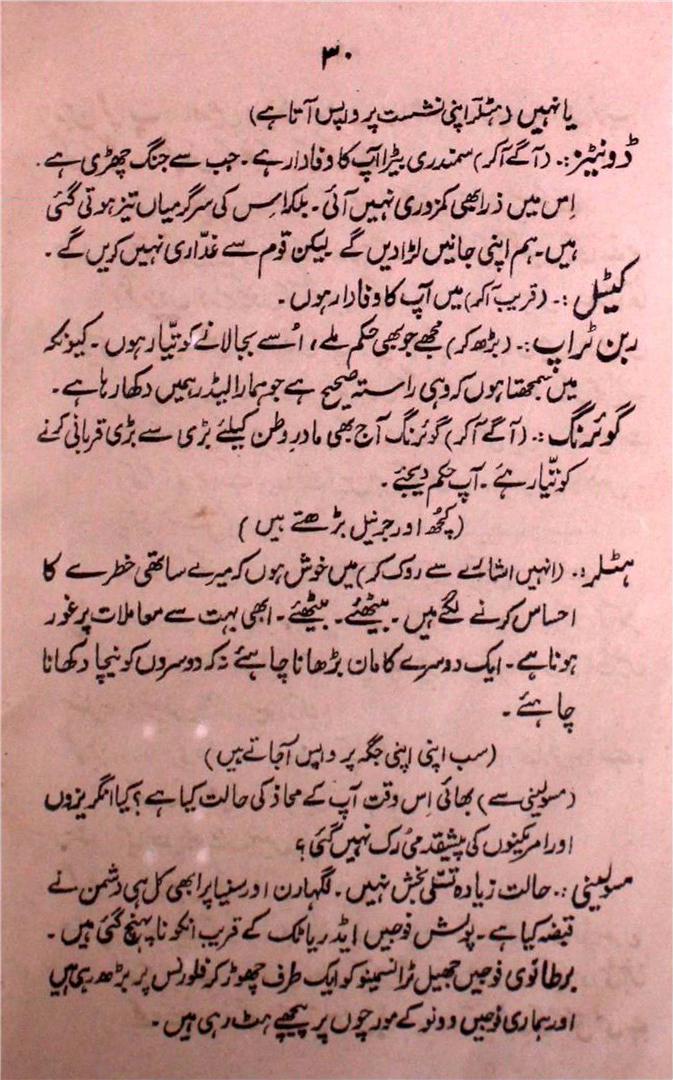 ۳۰
یا نہیں (ہٹلر اپنی نشست پر واپس آتا ہے)
ڈونیٹز:۔ (آگے آکر) سمندری بیڑا آپ کا وفادار ہے۔ جب سے جنگ چھڑی ہے۔
اِس میں ذرا بھی کمزوری نہیں آئی۔ بلکہ اس کی سرگرمیاں تیز ہوتی گئی
ہیں۔ ہم اپنی جانیں لڑا دیں گے لیکن قوم سے غدّاری نہیں کریں گے۔
کیٹل:۔ (قریب آکر) میں آپ کا وفادار ہوں۔
ربن ٹراپ:۔ (بڑھ کر) مجھے جو بھی حکم ملے، اُسے بجا لانے کو تیّار ہوں۔ کیونکہ
میں سمجھتا ہوں کہ وہی راستہ صحیح ہے جو ہمارا لیڈر ہمیں دکھا رہا ہے۔
گوئرنگ:۔ (آگے آکر) گوئرنگ آج بھی مادرِ وطن کیلئے بڑی سے بڑی قربانی کرنے
کو تیّار ہے۔ آپ حکم دیجئے۔
(کچُھ اور جرنیل بڑھتے ہیں)
ہٹلر:۔ (انہیں اشارے سے روک کر) میں خوش ہوں کہ میرے ساتھی خطرے کا
احساس کرنے لگے ہیں۔ بیٹھئے۔ بیٹھئے۔ ابھی بہت سے معاملات پر غور
ہونا ہے۔ ایک دوسرے کا مان بڑھانا چاہئے نہ کہ دوسروں کو نیچا دکھانا
چاہئے۔
(سب اپنی اپنی جگہ پر واپس آجاتے ہیں)
(مسولینی سے) بھائی اِس وقت آپ کے محاذ کی حالت کیا ہے؟ کیا انگریزوں
اور امریکنوں کی پیشقدمی رُک نہیں گئی؟
مسولینی:۔ حالت زیادہ تسّلی بخش نہیں۔ لگہارن اور سنیا پر ابھی کل ہی دشمن نے
قبضہ کیا ہے۔ پولش فوجیں ایڈریاٹک کے قریب انکونا پہنچ گئی ہیں۔
برطانوی فوجیں جھیل ٹرانسمینو کو ایک طرف چھوڑ کر فلورنس پر بڑھ رہی ہیں
اور ہماری فوجیں دونو کے مورچوں پر پیچھے ہٹ رہی ہیں۔